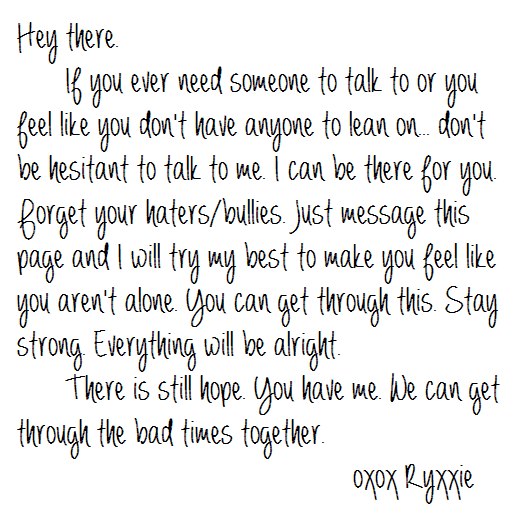 Hey there.
If you ever need someone to talk to or you
feel like you don't have anyone to lean on... don't
be hesitant to talk to me. I can be there for you.
Forget your haters/bullies. Just message this
page and I will try my best to make you feel like
you aren't alone. You can get through this. Stay
strong. Everything will be alright.
There is still hope. You have me. We can get
through the bad times together.
oxox Ryxxie